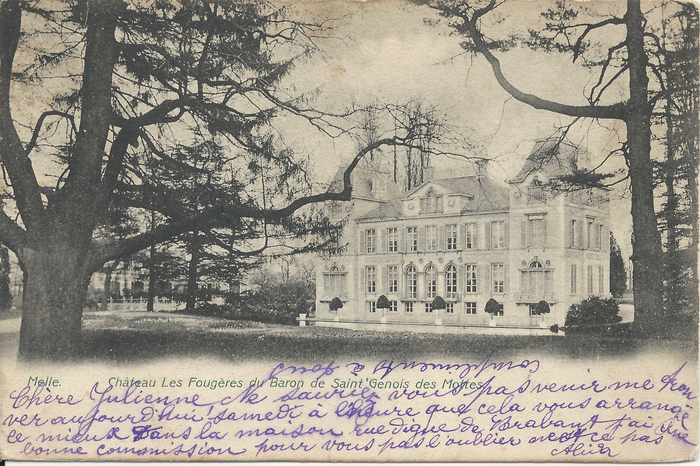 Melle. Château Les Fougères du Baron de Saint Genois des Mottes
Chère Julienne Ne sauriez vous pas venir me trou
ver aujourd'hui samedi à l'heure que cela vous arrange
ce mieux Dans la maison rue digne de Brabant j'ai une
bonne commission pour vous pas l'oublier n'est ce pas
compliments à tous